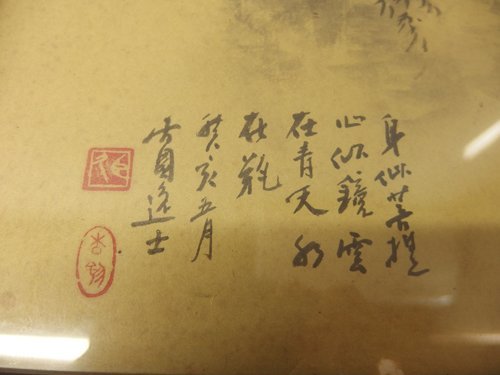 身似菩提
心似鏡雲
在青天水
在瓶
癸亥五月
逸士